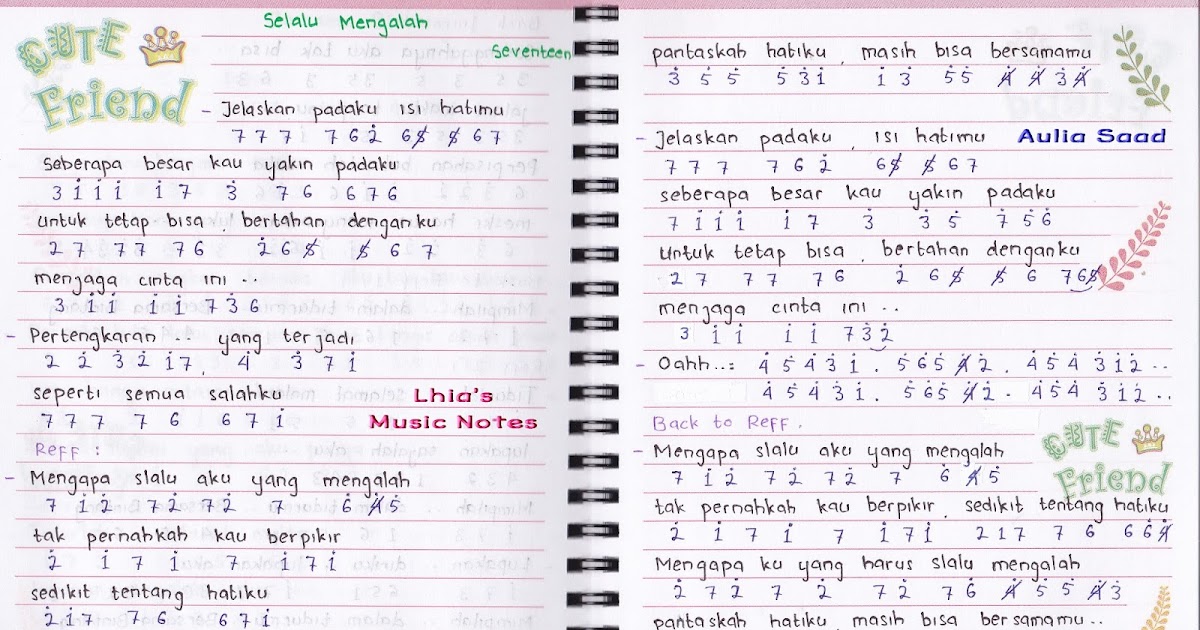 Selalu Mengalah
Seventeen
CUTE
Friend
- Jelaskan padaku isi hatimu
7 7 7 7 6 2̇ 6 5̸ 5̸ 6 7
seberapa besar kau yakin padaku
3 1̇ 1̇ 1̇ 1̇ 7 3̇ 7 6 6 7 6
untuk tetap bisa . bertahan denganku
2 7 7 7 7 6 2̇ 6 5̸ 5̸ 6 7
menjaga cinta ini ..
3 1̇ 1̇ 1̇ 1̇ 7 3 6
- Pertengkaran .. yang terjadi
2̇ 2̇ 3̇ 2̇ 1̇ 7 . 4̇ 3̇ 7 1̇
seperti semua salahku
7 7 7 7 6 6 7 1̇
Lhia's
Music Notes
Reff :
- Mengapa slalu aku yang mengalah
7 1̇ 2̇ 7 2̇ 7 2̇ 7 6̇ 4̸̇ 5̇
tak pernahkah kau berpikir
2̇ 1̇ 7 1̇ 7 1̇ 7 1̇
sedikit tentang hatiku
2̇ 1̇ 7 7 6 6 7 1̇
pantaskah hatiku . masih bisa bersamamu
3̇ 5̇ 5̇ 5̇ 3̇ 1̇ 1̇ 3̇ 5̇ 5̇ 4̸̇ 4̸̇ 3̇ 4̸̇
- Jelaskan padaku . isi hatimu
Aulia Saad
7 7 7 7 6 2̇ 6 5̸ 5̸ 6 7
seberapa besar kau yakin padaku
7 1̇ 1̇ 1̇ 1̇ 7 3̇ 3̇ 5̇ 7 5̇ 6̇
untuk tetap bisa . bertahan denganku
2 7 7 7 7 6 2̇ 6 5̸ 5̸ 6 7 6 5̸
menjaga cinta ini ..
3 1̇ 1̇ 1̇ 1̇ 7 3̇ 2̇
- Oahh..: 4̇ 5̇ 4̇ 3̇ 1̇ . 5̇ 6̇ 5̇ 4̸̇ 2̇ . 4̇ 5̇ 4̇ 3̇ 1̇ 2̇ ..
4̇ 5̇ 4̇ 3̇ 1̇ . 5̇ 6̇ 5̇ 4̸̇ 2̇ . 4̇ 5̇ 4̇ 3̇ 1̇ 2̇ ..
Back to Reff .
CUTE
Friend
- Mengapa slalu aku yang mengalah
7 1̇ 2̇ 7 2̇ 7 2̇ 7 6̇ 4̸̇ 5̇
tak pernahkah kau berpikir . sedikit tentang hatiku
2̇ 1̇ 7 1̇ 7 1̇ 7 1̇ 2̇ 1̇ 7 7 6 6̇ 6̇ 4̸̇
Mengapa ku yang harus slalu mengalah
2̇ 7 2̇ 7 2̇ 7 2̇ 7 6 4̸̇ 5̇ 5̇ 4̸̇ 3̇
pantaskah hatiku . masih bisa bersamamu ..